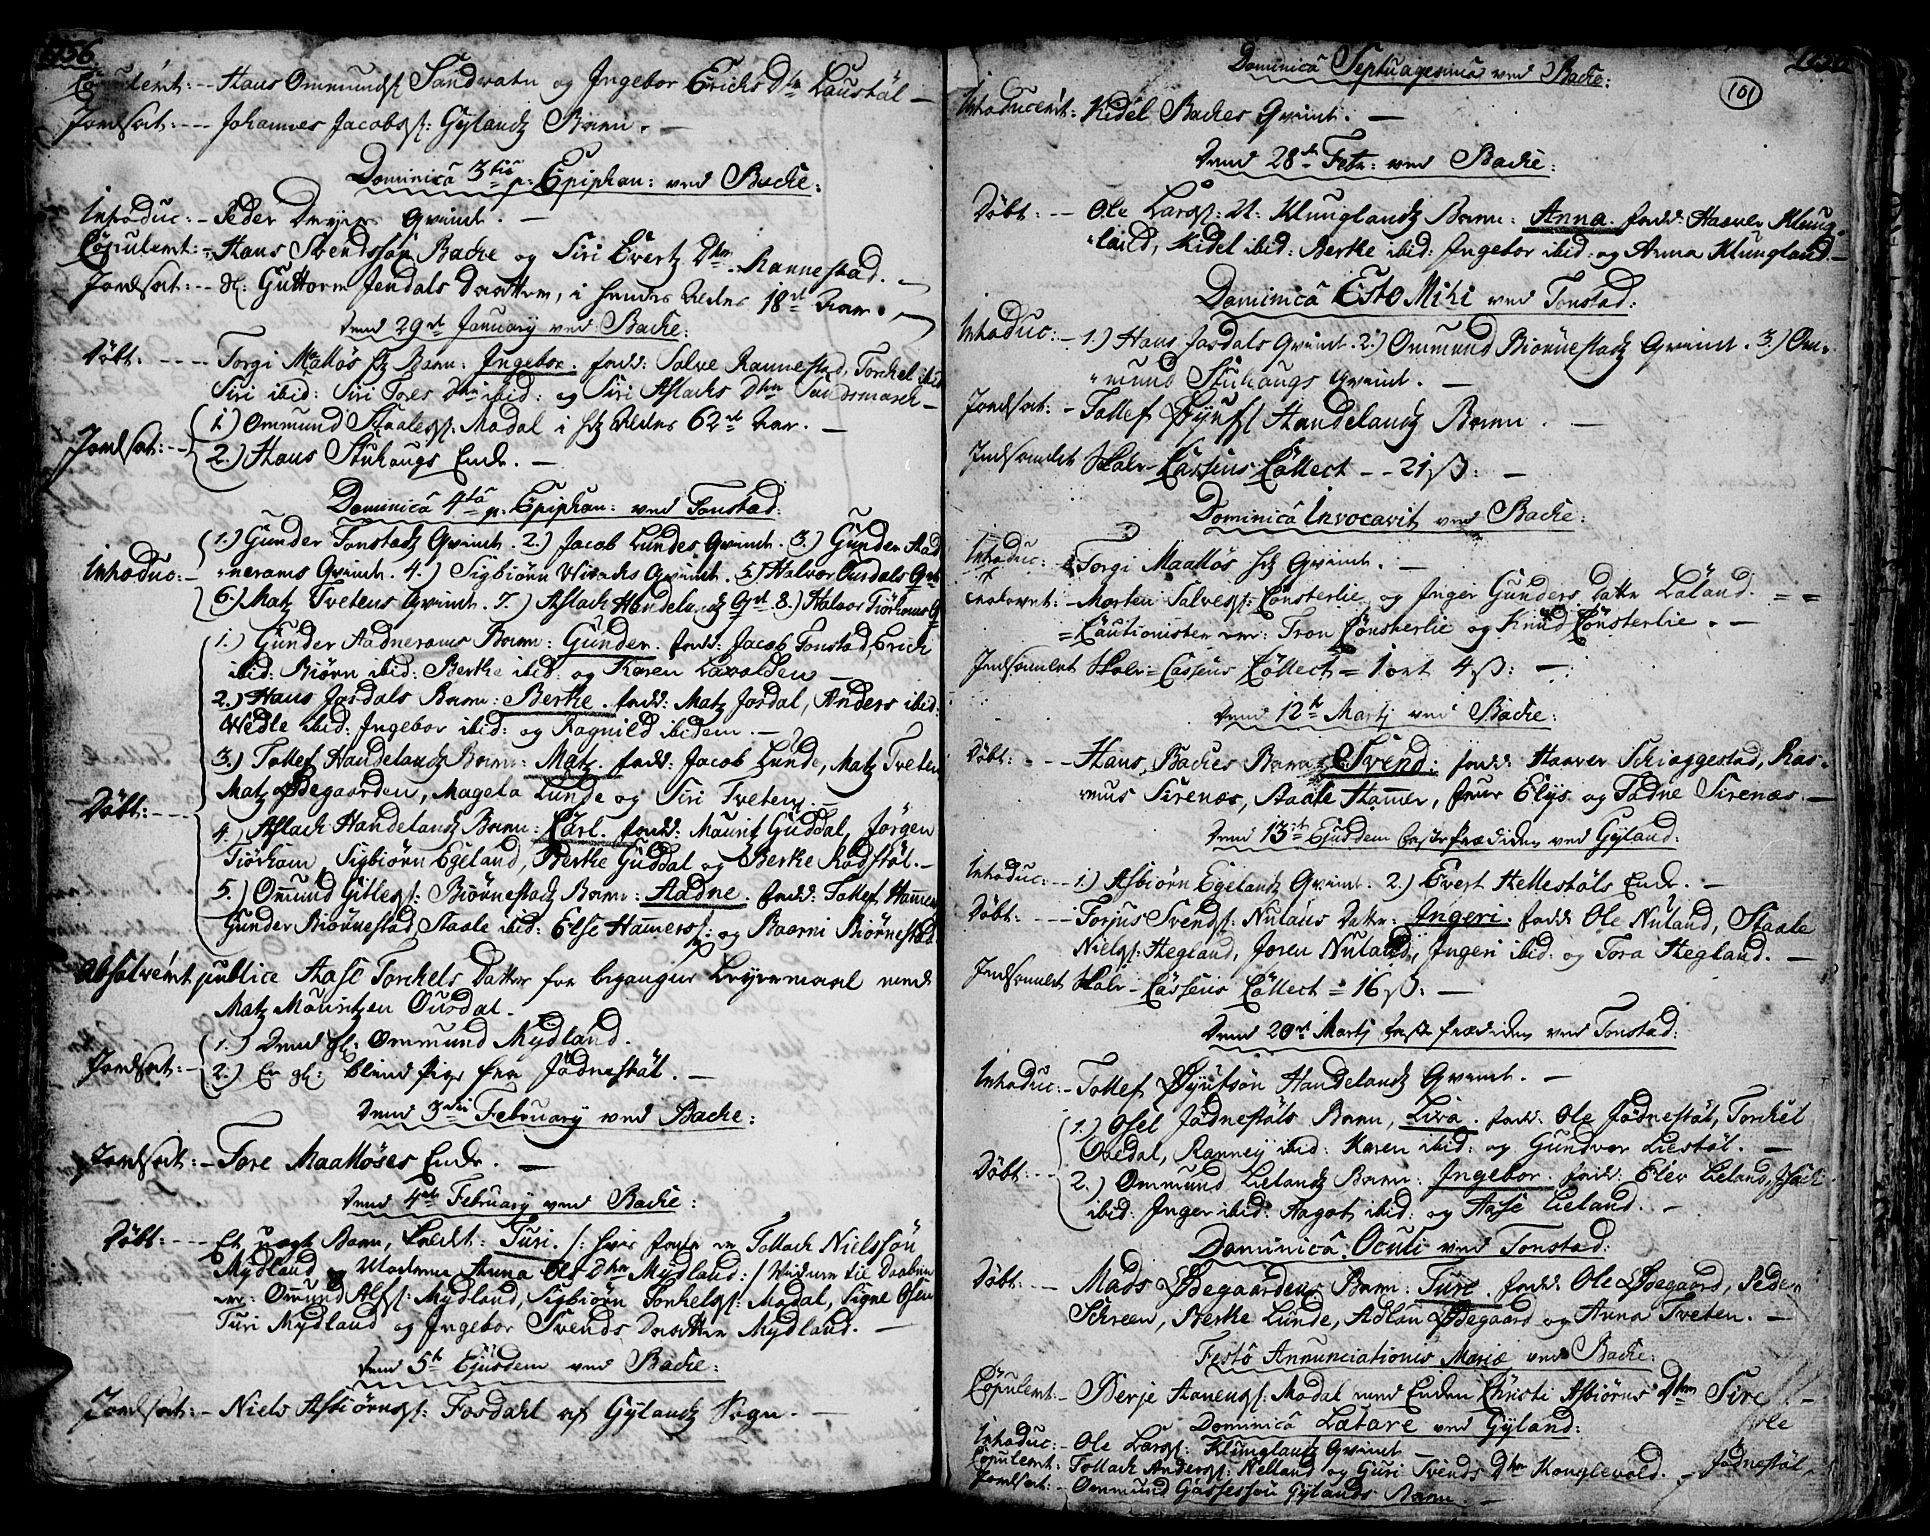 1756
Copuleret: - Hans Ommunds: Sandvatn og Ingebor Erichs Dtr Laustøl -
Jordsat: -- Johannes Jacobs: Gylandz Barn. -
Dominicâ 3tiâ p. Epiphan: ved Bache:
Introduc: - Peder Dryers Qvinde. -
Copuleret: - Hans Svendssøn Bache og Siri Evertz Dtr Rannestad. -
Jordsat: -- Sl: Guttorm Jendals Daatter, i hendes Alders 18de Aar. -
Dend 29de January ved Bache:
Døbt: ---- Torgi Maakøs hz Barn: Ingebor. fadd: Salve Rannestad, Torchel ibid
Siri ibid: Siri Tores Dtr ibid: og Siri Aslachs Dtr Sandsmarch -
Jordsat: -- 1.) Ommund Staales: Modal i hz Alders 62de Aar. -
2.) Hans Stuhougs Enke. -
Dominicâ 4tâ p. Epiphan: ved Tonstad:
Introduc: - 1.) Gunder Tonstadz Qvinde. 2.) Jacob Lundes Qvinde. 3.) Gunder Aad-
nerams Qvinde. 4.) Sigbiørn Qvinde. 5.) Halvor Ousdals Qvde
6.) Matz Tvetens Qvinde. 7.) Aslach Handelandz Qvde 8.) Halvor Tiørhoms Q
1.) Gunder Aadnerams Barn: Gunder. fadd: Jacob Tonstad, Erich
ibid: Biørn ibid: Berthe ibid: og Karen Lavolden -
2.) Hans Josdals Barn: Berthe. fadd: Matz Josdal, Anders ibid:
Wedle ibid: Ingebor ibid: og Ragnild ibidem. -
3.) Tollef Handelandz Barn: Matz. fadd: Jacob Lunde, Matz Tveten
Døbt: --- Matz Ødegaarden, Magela Lunde og Siri Tveten. -
4.) Aslach Handelandz Barn: Carl. fadd: Mourit Guddal, Jørgen
Tiørhom, Sigbiørn Egeland, Berthe Guddal og Berthe Rødstøl. -
5.) Ommund Gitles: Biørnestadz Barn: Aadne. fadd: Tollef Hammer
Gunder Biørnestad, Staale ibid: Else Hammers: og Baarni Biørnestad
Absolveret publice Aase Torchels Datter for begangne Leyermaal med
Matz Mouritzen Ousdal.
Jordsat: - 1.) Dend gl: Ommund Mydland.
2.) En gl: blind pige fra Jødnestøl. -
Dend 3die February ved Bache:
Jordsat: - Tore Maakøses Enke. -
Dend 4de February ved Bache:
Døbt: --- Et uægt Barn, kaldet: Turi. /: hvis fader er Tollach Nielssøn
Mydland og Moderen Anna Ols Dtr Mydland :/ Vidner til Daaben
er: Ommund Alfs: Mydland, Sigbiørn Torchels: Modal, Signe Osen
Turi Mydland og Ingebor Svends Daatter Mydland. -
Dend 5te Ejusdem ved Bache:
Jordsat: - Niels Asbiørns: Fosdahl af Gylandz Sogn. -
101
Dominicâ Septuagesimâ ved Bache:
Introduceret: Kidel Baches Qvinde. -
Dend 28de Febr: ved Bache:
Døbt: -- Ole Lars: N: Klunglandz Barn: Anna. fadd: Haaver Klung-
land, Kidel ibid: Berthe ibid: Ingebor ibid: og Anna Klungland -
Dominicâ Esto Mihi ved Tonstad:
Introduc: - 1.) Hans Josdals Qvinde. 2.) Ommund Biørnestadz Qvinde. 3.) Om-
mund Stuhaugs Qvinde. -
Jordsat: - Tollef Øyufs: Handelandz Barn. -
Indsamlet Skole-Cassens Collect -- 21 ß: -
Dominicâ Invocavit ved Bache:
Introduc: Torgi Maakøs hz Qvinde. -
Trolovet: - Morten Salves: Consterlie og Inger Gunders Datter Løland. = =
= Cautionister er: Tron Consterlie og Knud Consterlie. -
Indsamlet Skole-Cassens Collect = 1 ort 4 ß: -
Dend 12te Martj ved Bache:
Døbt: -- Hans Baches Barn: Svend: fadd: Haaver Schiaggestad, Ras-
mus Sirenæs, Staale Hammer, Elys og Tadne Sirenæs. -
Dend 13de Ejusdem fasteprædiken ved Gyland:
Introduc: - 1.) Asbiørn Egelandz Qvinde. 2.) Evert Hellestøls Enke. -
Døbt: --- Torjus Svends: Nulans Datter: Ingeri. fadd: Ole Nuland, Staale
Niels: Hegland, Joren Nuland, Ingeri ibid: og Tora Hegland. -
Indsamlet Skole-Cassens Collect = 16 ß: -
Dend 20de Martj faste prædiken ved Tonstad:
Introduc: - Tollef Øyufsøn Handelandz Qvinde. -
1.) Osel Jødnestøls Barn, Liva. fadd: Ole Jødnestøl, Torchel
Ovedal, Ranney ibid: Karen ibid: og Gundvor Liestøl. -
Døbt: -- 2.) Ommund Lielandz Barn: Ingebor. fadd: Elev Lieland,
ibid: Inger ibid: Aagot ibid: og Aase Lieland. -
Dominicâ Oculi ved Tonstad:
Døbt: -- Mads Ødegaardens Barn: Ture. fadd: Ole Ødegaard, Peder
Schreen, Berthe Lunde, Adlau Ødegaard og Anna Tveten. -
Festô Annunciationis Mariæ ved Bache:
Copuleret: - Berje Aanens: Modal med Enken Christi Asbiørns Dtr Sire
Dominicâ Lætare ved Gyland:
Introduc: - Ole Lars: Klunglandz Qvinde -
Copuleret: Tollach Anders: Nelland og Guri Svends Dtr Konglevold. - Jødnestøl
Jordsat: - Ommund Gassessøn Gylands Barn. -